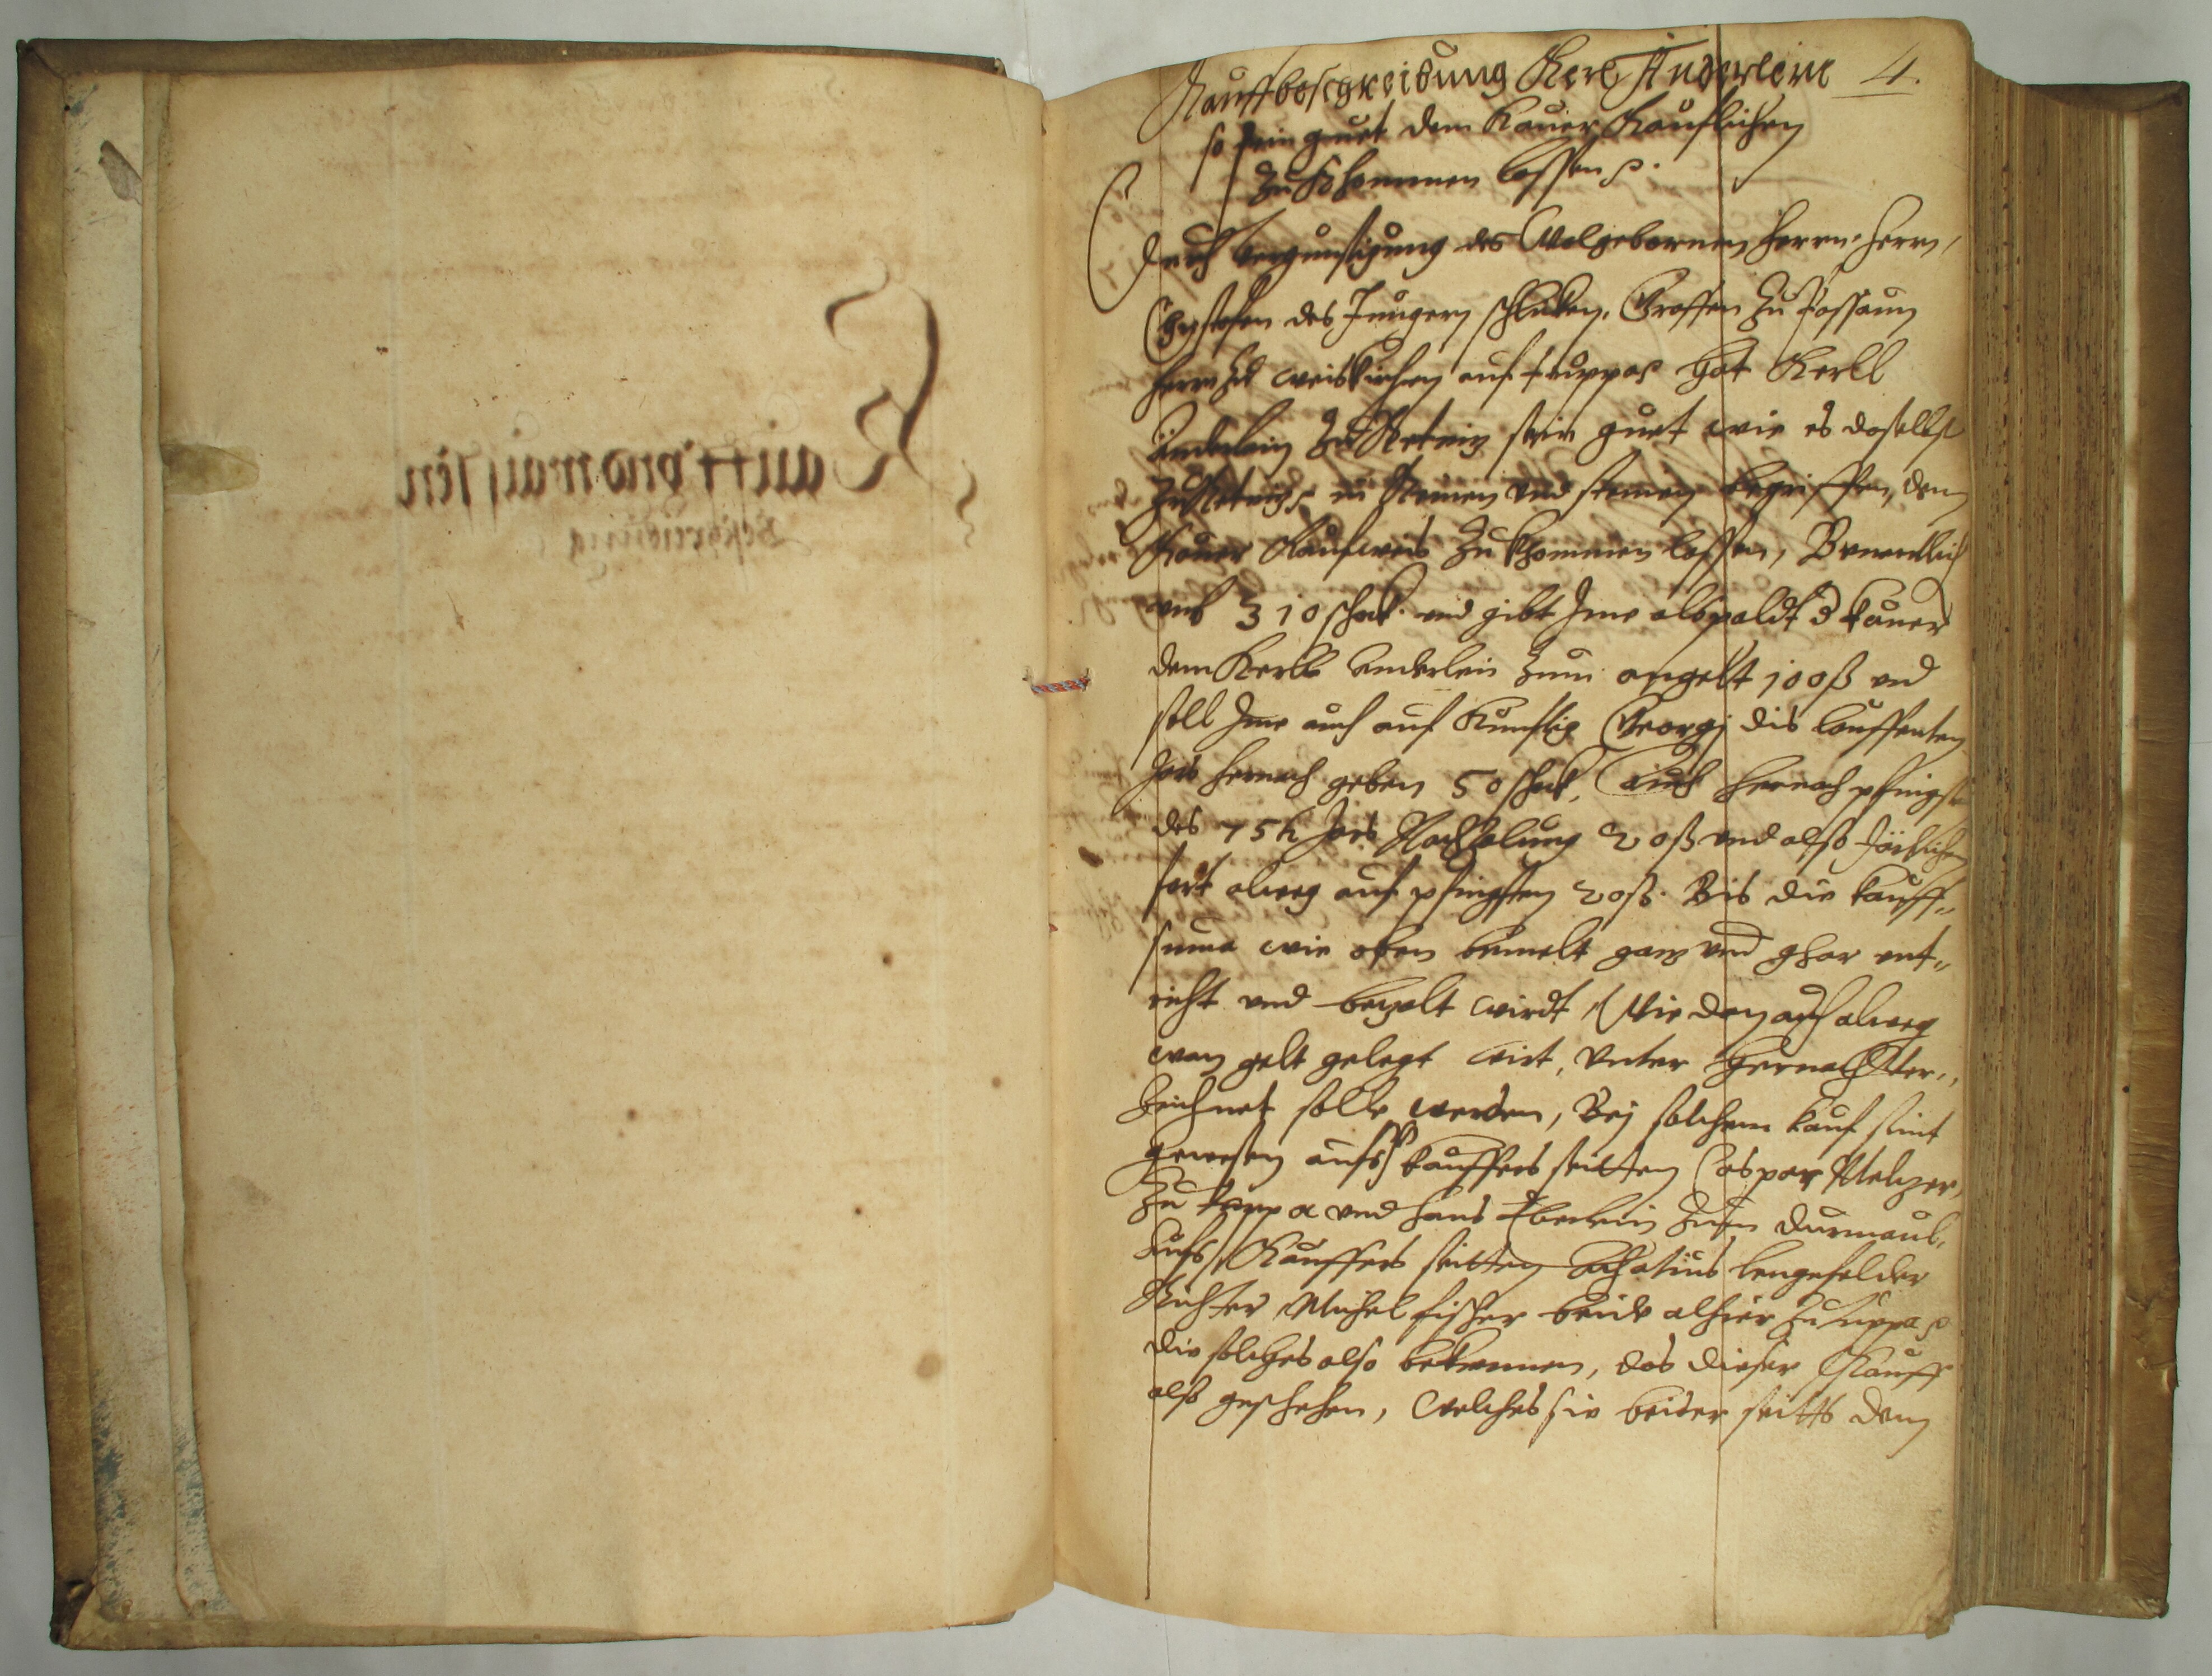 Kauffbeschreibung Kerl Anderlein 4.
so sein guet dem Kauer Kauflichen
zu khommen lassen
Durch vergunstigung des Wolgebornen herrn herrn
Christofen des Jungern Schliken, Graffen zu Passaun
herrn zu weiskirchen auf hat Kerll
Anderlein zu sein guet wie es daselbst
in Reinen und steinen begriffen, dem
Kauer Kaufweis zu khommen lassen, Benentlich
umb 310 schock und gibt Ime alspaldt Kauer
dem Kerll Anderlein zum angelt 100 ß und
soll Ime auch auf Kunftig Georgj dis lauffenten
Jars hernach geben 50 schock, Auch hernach pfingsten
des 75 Jars 20 ß und also Järlichen
fort alweg auf pfingsten 20 ß. Bis die kauff„
suma wie oben bemelt ganz und ghar ent„
richt und bezalt wirdt, Wie dan auch alweg
wan gelt gelegt wirt, unter hernach ver„
zeichnet solle werden, Bej solchem kauf seint
gewesen aufs kauffers seitten Caspar Melzer,
zu und hans Eberlein zum Durmaul,
Aufs Kauffers seitten Achatius lengefelder
Richter Michel fischer beide alhier zu
die solches also bekennen, das dieser Kauff
also geschehen, Welches sie beider seitts dem